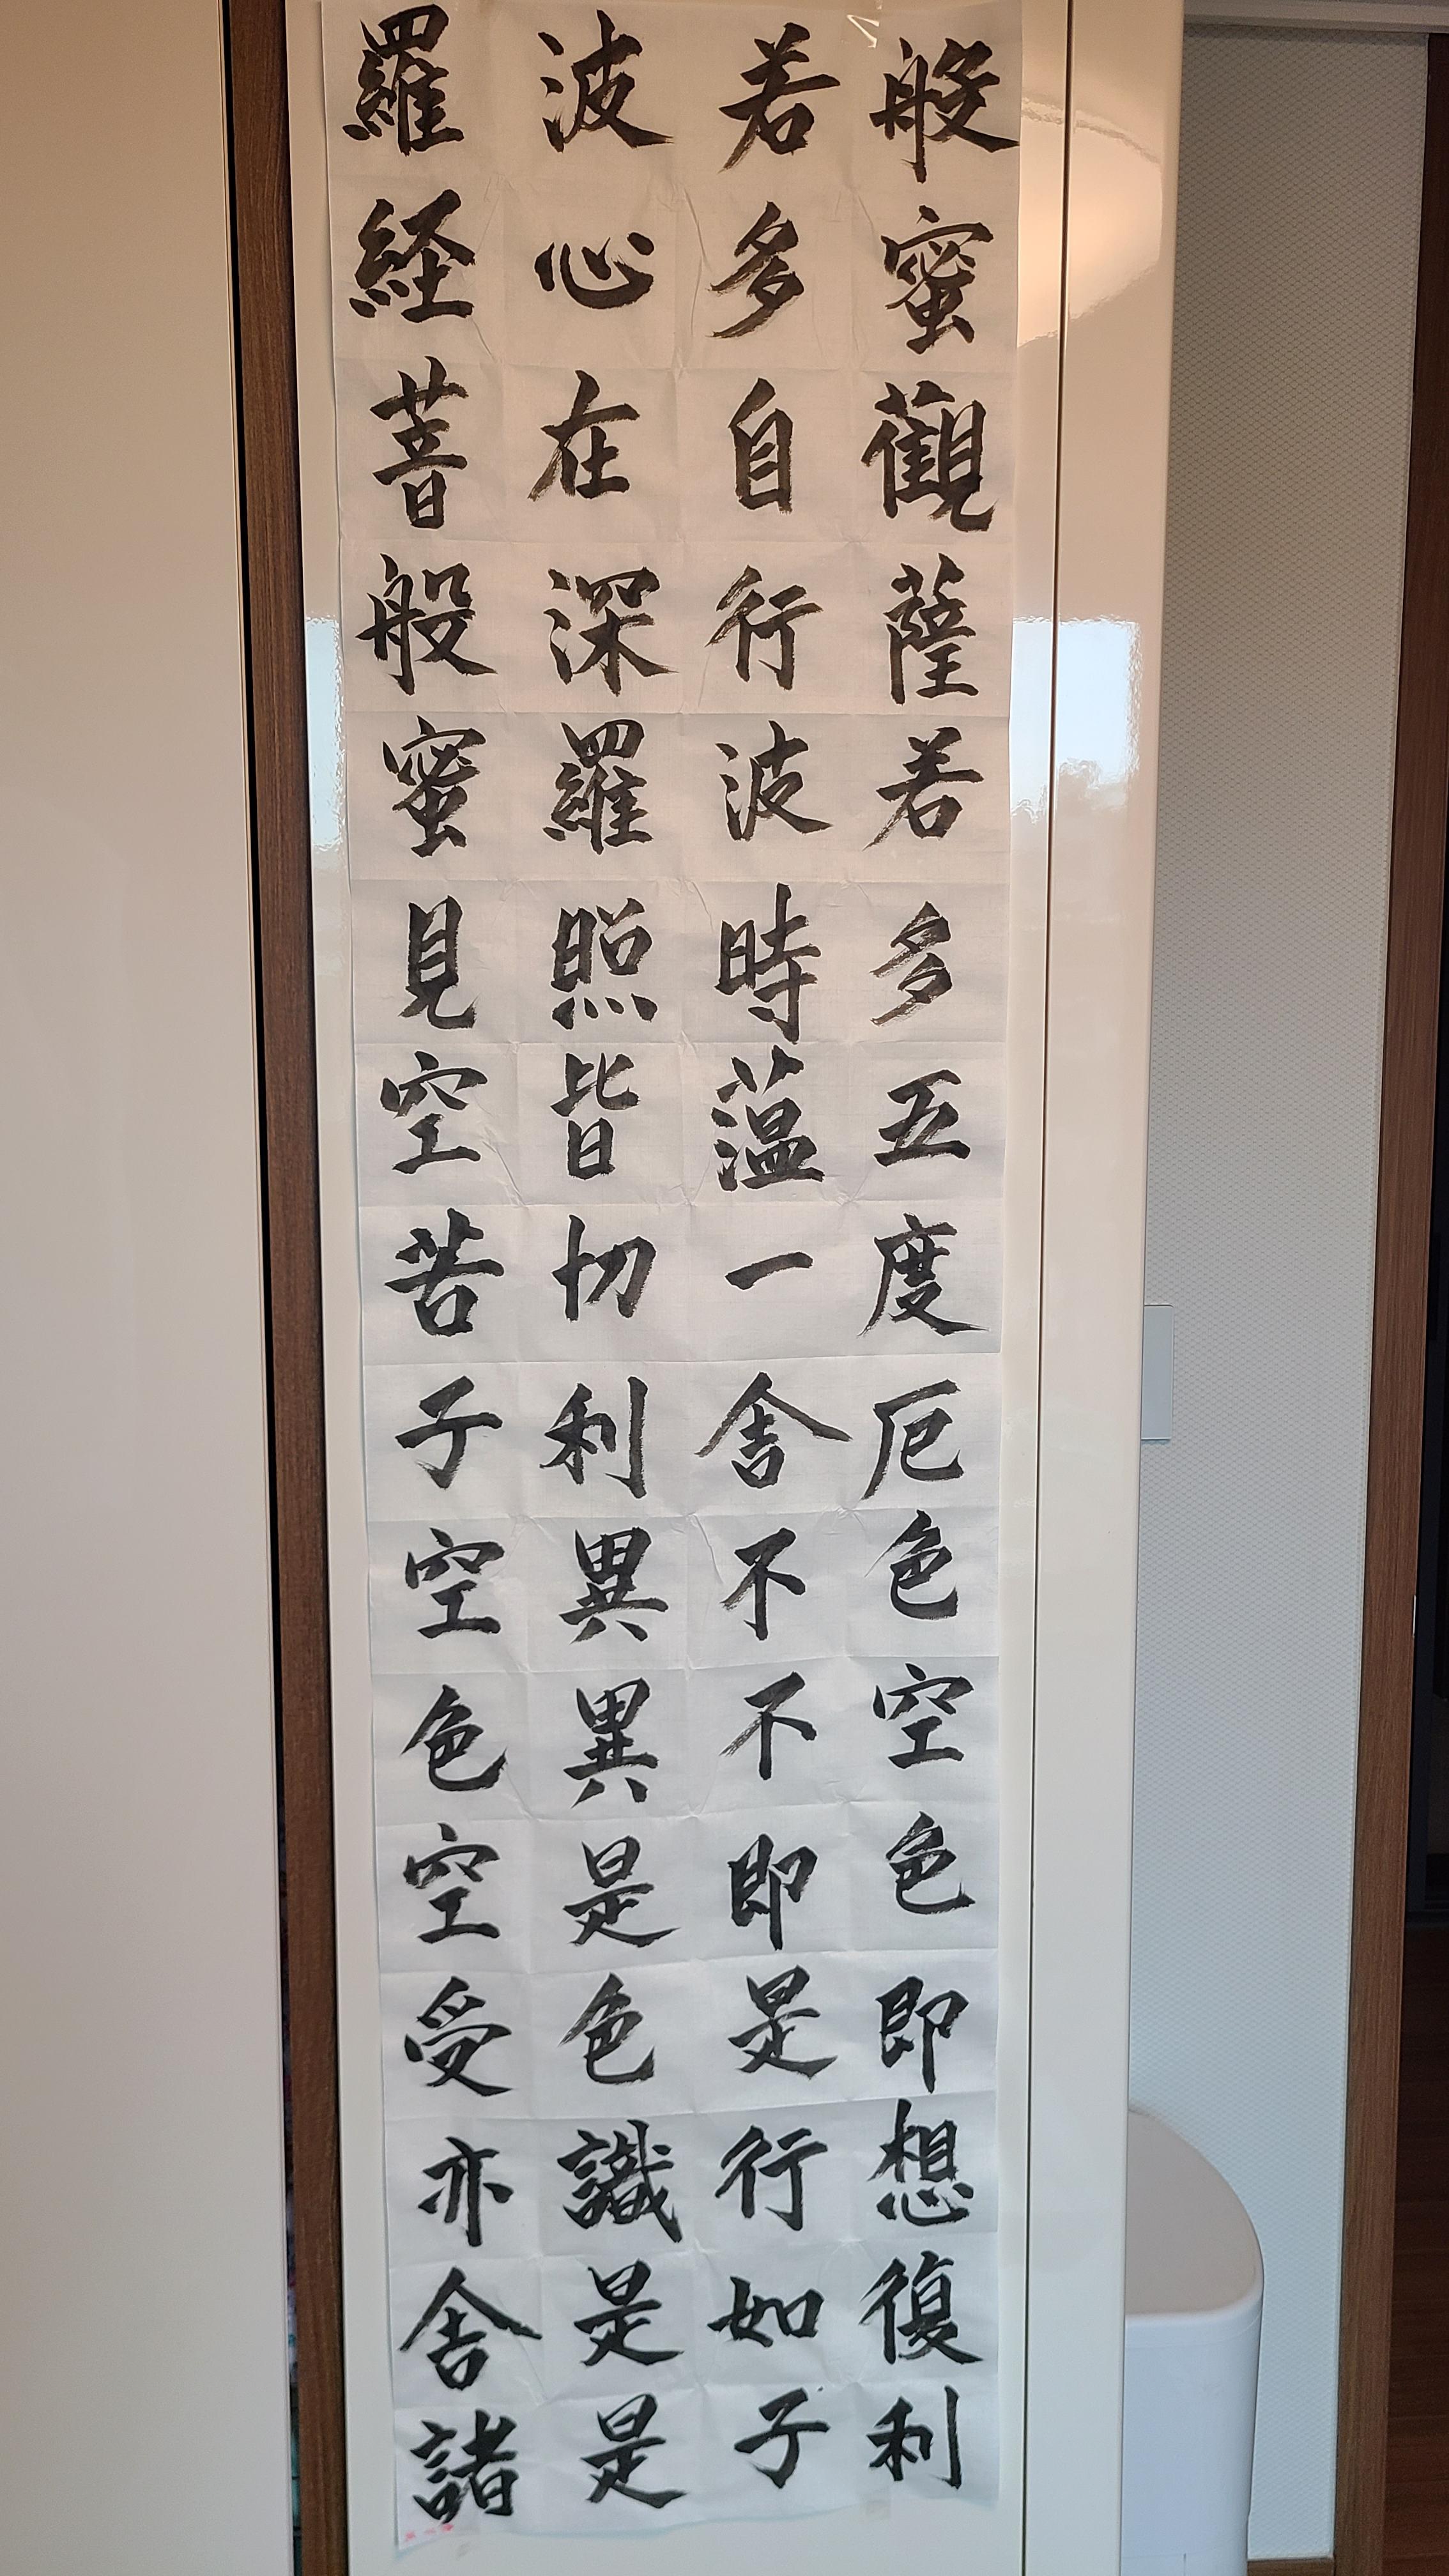 般若波羅
蜜多心経
觀自在菩
薩行深般
若波羅蜜
多時照見
五薀皆空
度一切苦
厄舎利子
色不異空
空不異色
色即是空
即是色受
想行識亦
復如是舎
利子是諸